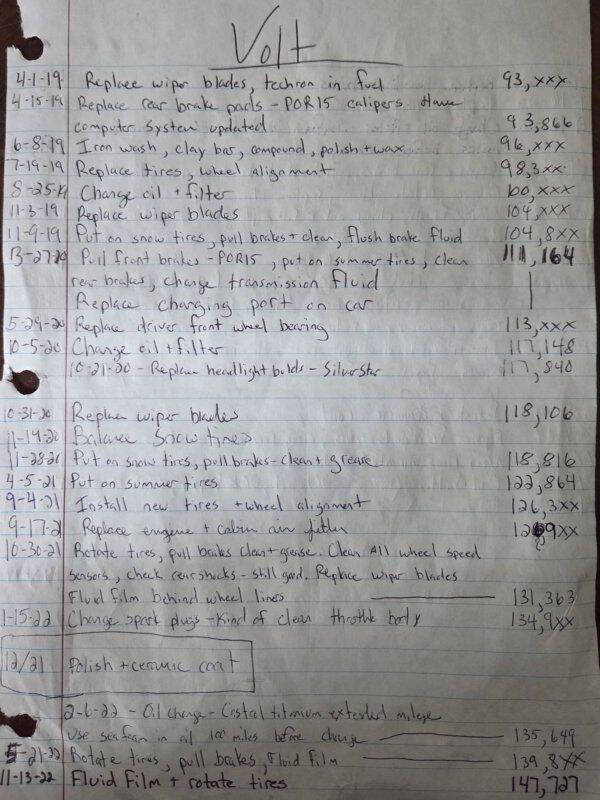 Volt
4-1-19 Replace wiper blades, techron in fuel 93,xxx
4-15-19 Replace rear brake pads - POR15 calipers Have
computer system updated 93,866
6-8-19 Iron wash, clay bar, compound, polish + wax 96,xxx
7-19-19 Replace tires, wheel alignment 98,3xx
8-25-19 Change oil + filter 100,xxx
11-3-19 Replace wiper blades 104,xxx
11-9-19 Put on snow tires, pull brakes + clean, flush brake fluid 104,8xx
3-27-20 Pull front brakes - POR15, put on summer tires, clean 111,164
rear brakes, change transmission fluid
Replace charging port on car
5-24-20 Replace driver front wheel bearing 113,xxx
10-5-20 Change oil + filter 117,148
10-21-20 - Replace headlight bulbs - SilverStar 117,840
10-31-20 Replace wiper blades 118,106
11-14-20 Balance snow tires
11-28-20 Put on snow tires, pull brakes - clean + grease 118,816
4-5-21 Put on summer tires 122,864
9-4-21 Install new tires + wheel alignment 126,3xx
9-17-21 Replace engine + cabin air filter 9xx
10-30-21 Rotate tires, pull brakes clean + grease. Clean All wheel speed
sensors, check rear shocks - still good. Replace wiper blades
Fluid Film behind wheel lines 131,363
1-15-22 Change spark plugs - Kind of clean throttle body 134,9xx
12/21 Polish + ceramic coat
2-6-22 - Oil change - Castrol titanium extended milege
Use seafoam in oil 100 miles before change 135,649
5-21-22 Rotate tires, pull brakes, Fluid Film 139,8xx
11-13-22 Fluid Film + rotate tires 147,727